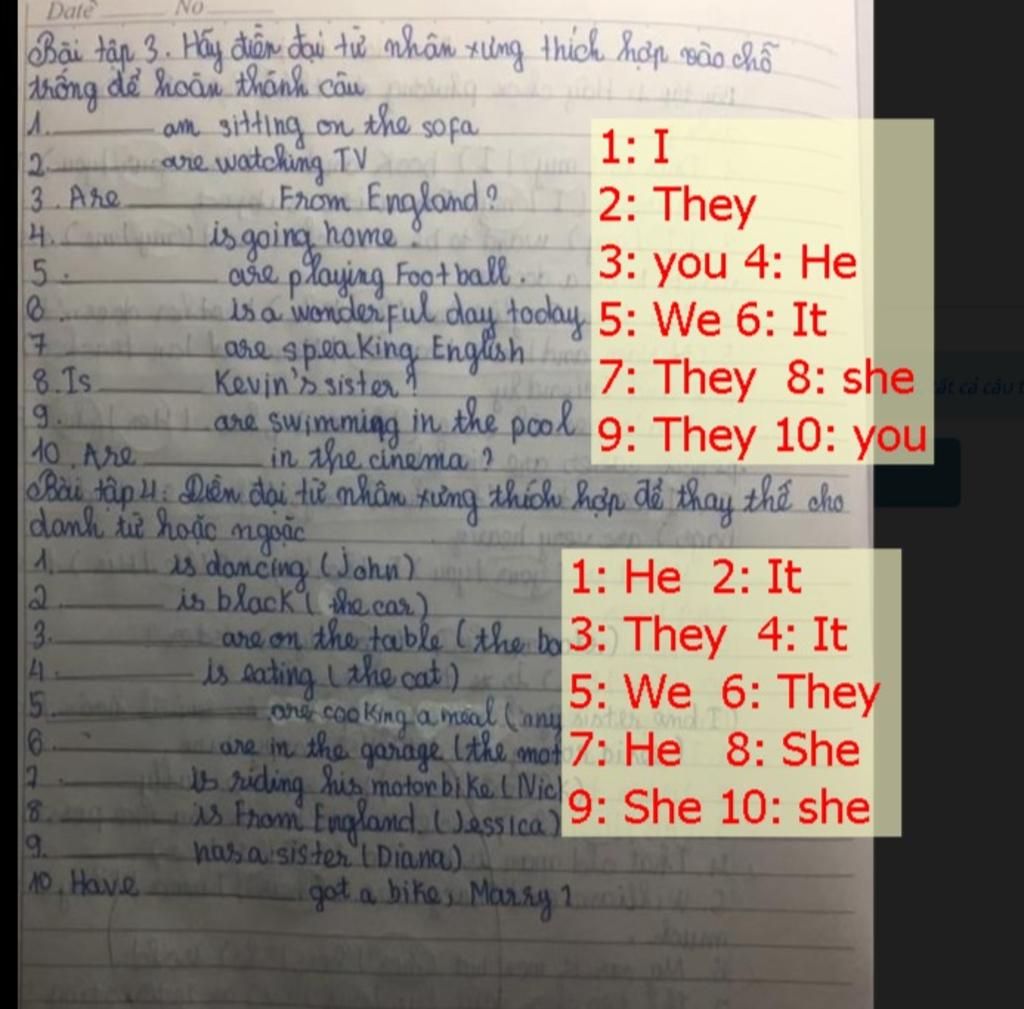 Date No
Bài tập 3. Hãy điền đại từ nhân xưng thích hợp vào chỗ
trống để hoàn thành câu
1. ______ am sitting on the sofa
2. ______ are watching TV
3. Are ______ From England?
4. ______ is going home
5. ______ are playing Football.
6. ______ is a wonderful day today
7 ______ are speaking English
8. Is ______ Kevin's sister?
9. ______ are swimming in the pool
10. Are ______ in the cinema?
1: I
2: They
3: you 4: He
5: We 6: It
7: They 8: she
9: They 10: you
Bài tập 4: Điền đại từ nhân xưng thích hợp để thay thế cho
danh từ hoặc ngoặc
1. ______ is dancing (John)
2 ______ is black (the car)
3. ______ are on the table (the
4. ______ is eating (the cat)
5. ______ are cooking a meal (my sister and I)
6 ______ are in the garage (the
7 ______ is riding his motorbike (Nick
8 ______ is From England (Jessica)
9. ______ has a sister (Diana)
10. Have ______ got a bike, Marry?
1: He 2: It
3: They 4: It
5: We 6: They
7: He 8: She
9: She 10: she